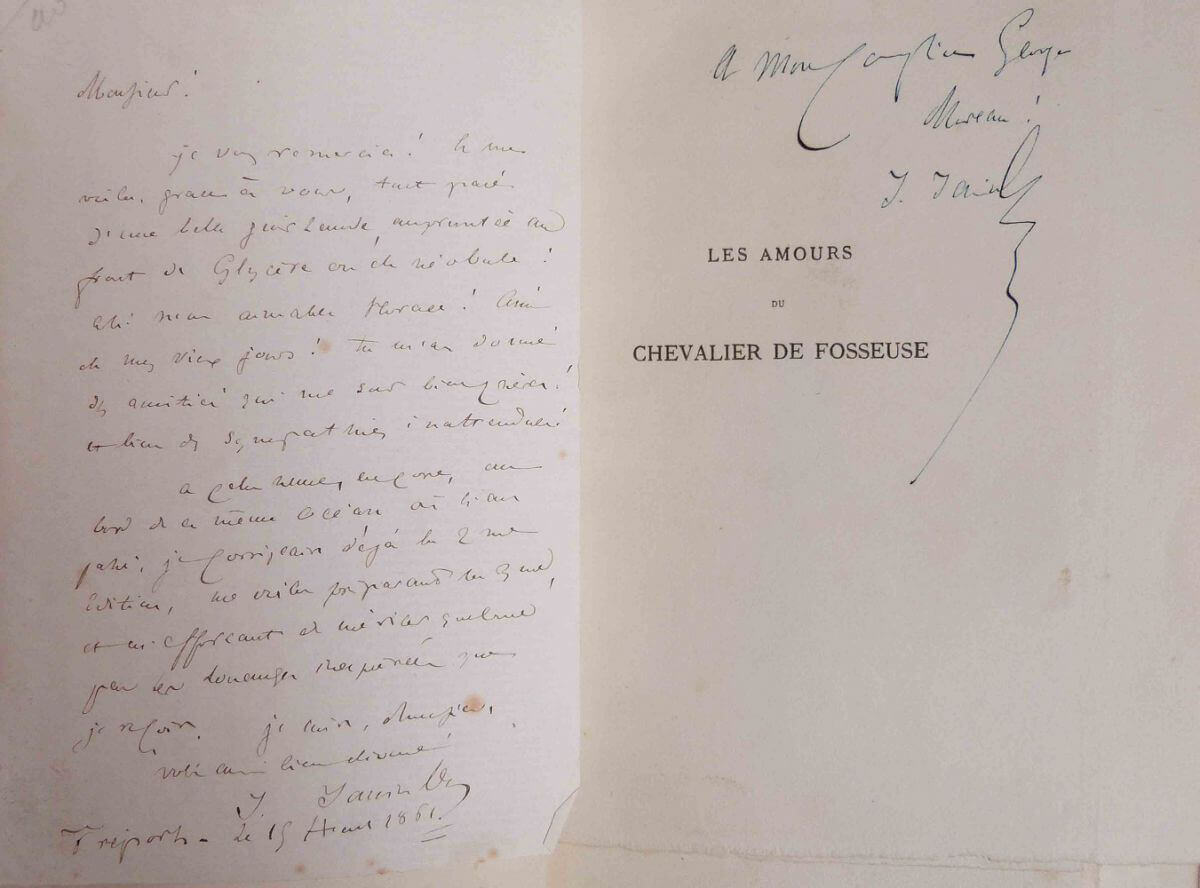 Monsieur!
je vous remercie! Et me
voilà, grace à vous, tout paré
d'une belle guirlande empruntée au
front de Glycère ou de Néobule!
Ah! mon aimable Horace! Ami
de mes vieux jours! Tu m'as donné
des amitiés qui me sont bien chères!
et bien des sympathies inattendues!
encore, au
bord de ce même océan où l'an
passé, je corrigeais déjà la 2me
Edition, me voilà préparant la 3me
et m'efforçant de mériter quelque
peu les louanges inespérées que
je reçois. je suis, Monsieur,
votre bien dévoué
J. Janin
Tréport - Le 15 Aout 1861.
A Mon George
Moreau!
J. Janin
LES AMOURS
DU
CHEVALIER DE FOSSEUSE